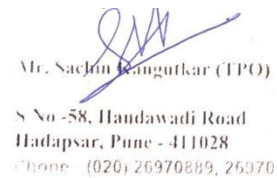 Mr. Sachin Rangutkar (TPO)
S No -58, Handawadi Road
Hadapsar, Pune - 411028
Phone (020) 26970889, 26970